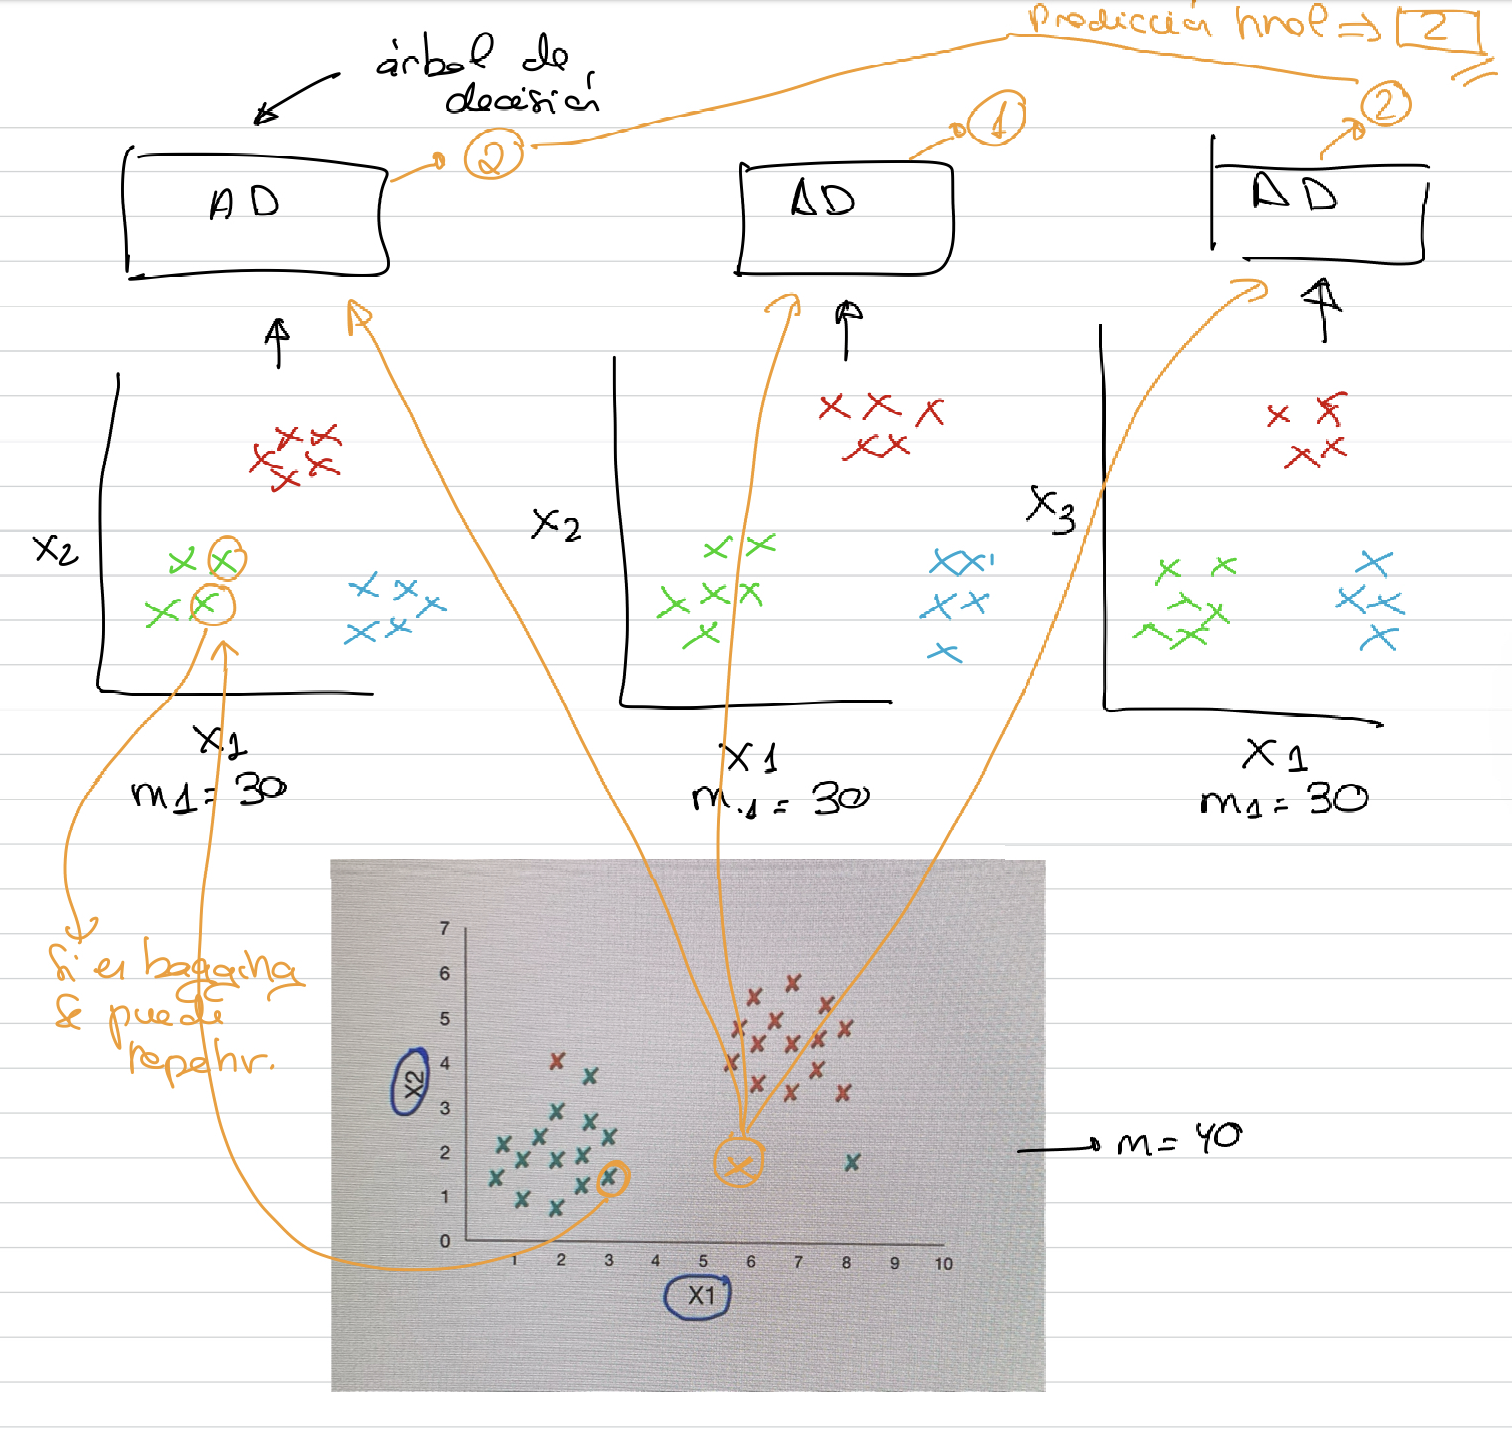 Predicción final ⇒ 2
árbol de
decisión
2
1
2
AD
AD
AD
X2
X2
X3
X1
X1
X1
m1 = 30
m.1 = 30
m1 = 30
Si es bagging
Se puede
repetir.
7
6
5
4
3
2
1
0
X2
1 2 3 4 5 6 7 8 9 10
X1
m = 40